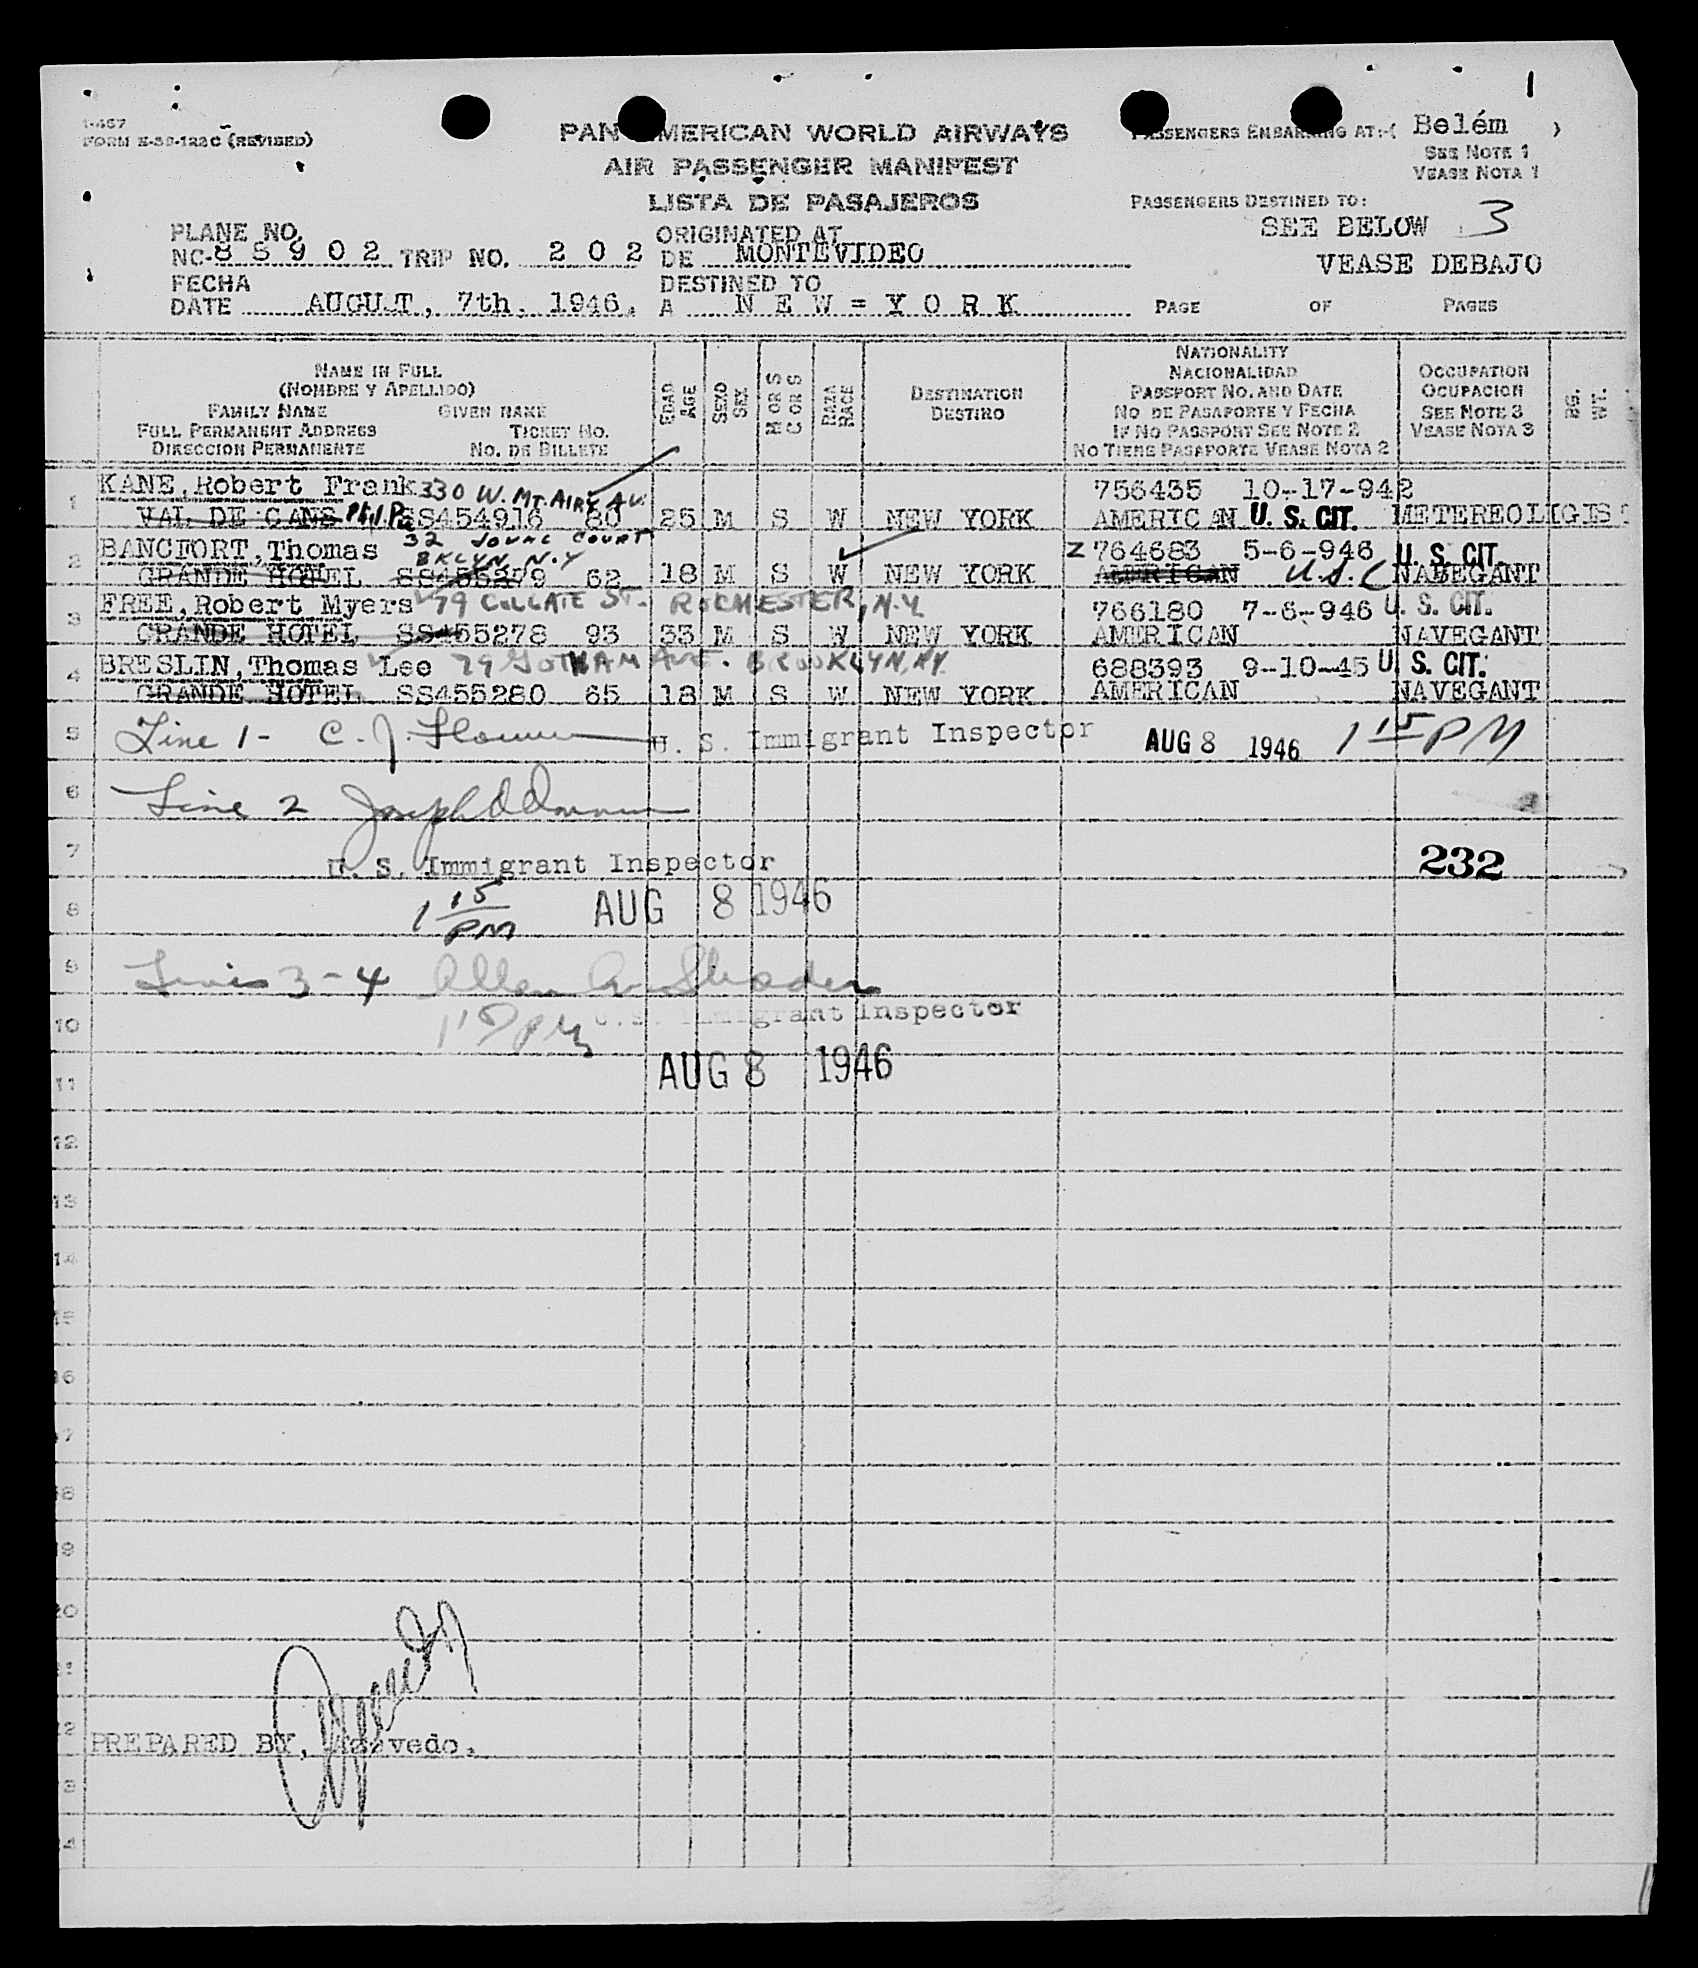 1-457
FORM E-39-122C (REVISED)
PAN AMERICAN WORLD AIRWAYS
AIR PASSENGER MANIFEST
LISTA DE PASAJEROS
PASSENGERS EMBARKING AT:-( Belém )
SEE NOTE 1
VEASE NOTA 1
PASSENGERS DESTINED TO:
SEE BELOW 3
VEASE DEBAJO
PLANE NO.
NC-88902 TRIP NO. 202
FECHA
DATE AUGUST, 7th, 1946.
ORIGINATED AT
DE MONTEVIDEO
DESTINED TO
A NEW=YORK
PAGE OF PAGES
NAME IN FULL
(NOMBRE Y APELLIDO)
FAMILY NAME GIVEN NAME
FULL PERMANENT ADDRESS TICKET NO.
DIRECCION PERMANENTE NO. DE BILLETE
EDAD AGE
SEXO SEX
M OR S C OR S
RAZA RACE
DESTINATION
DESTINO
NATIONALITY
NACIONALIDAD
PASSPORT NO. AND DATE
NO DE PASAPORTE Y FECHA
IF NO PASSPORT SEE NOTE 2
NO TIENE PASAPORTE VEASE NOTA 2
OCCUPATION
OCUPACION
SEE NOTE 3
VEASE NOTA 3
BG. WT.
1 KANE, Robert Frank 330 W. MT. AIRY AV. 756435 10-17-942
VAL DE CANS Phil Pa SS454916 80 25 M S W NEW YORK AMERICAN U. S. CIT. METEREOLIGIS
2 BANCFORT, Thomas 32 COURT BKLYN N.Y 764683 5-6-946 U. S. CIT.
GRANDE HOTEL SS455279 62 18 M S W NEW YORK AMERICAN U.S.C NAVEGANT
3 FREE, Robert Myers 79 ST. ROCHESTER, N.Y. 766180 7-6-946 U. S. CIT.
GRANDE HOTEL SS455278 93 33 M S W NEW YORK AMERICAN NAVEGANT
4 BRESLIN, Thomas Lee 79 GOTHAM AVE. BROOKLYN, N.Y. 688393 9-10-45 U. S. CIT.
GRANDE HOTEL SS455280 65 18 M S W NEW YORK AMERICAN NAVEGANT
5 Line 1 - C. J. U. S. Immigrant Inspector AUG 8 1946 1 15 PM
6 Line 2 Joseph
7 U. S. Immigrant Inspector 232
8 1 15 PM AUG 8 1946
9 Lines 3-4 Allen
10 1 15 PM U.S. Immigrant Inspector
11 AUG 8 1946
12
13
14
15
16
17
18
19
20
21
22 PREPARED BY, Azevedo.
23
24